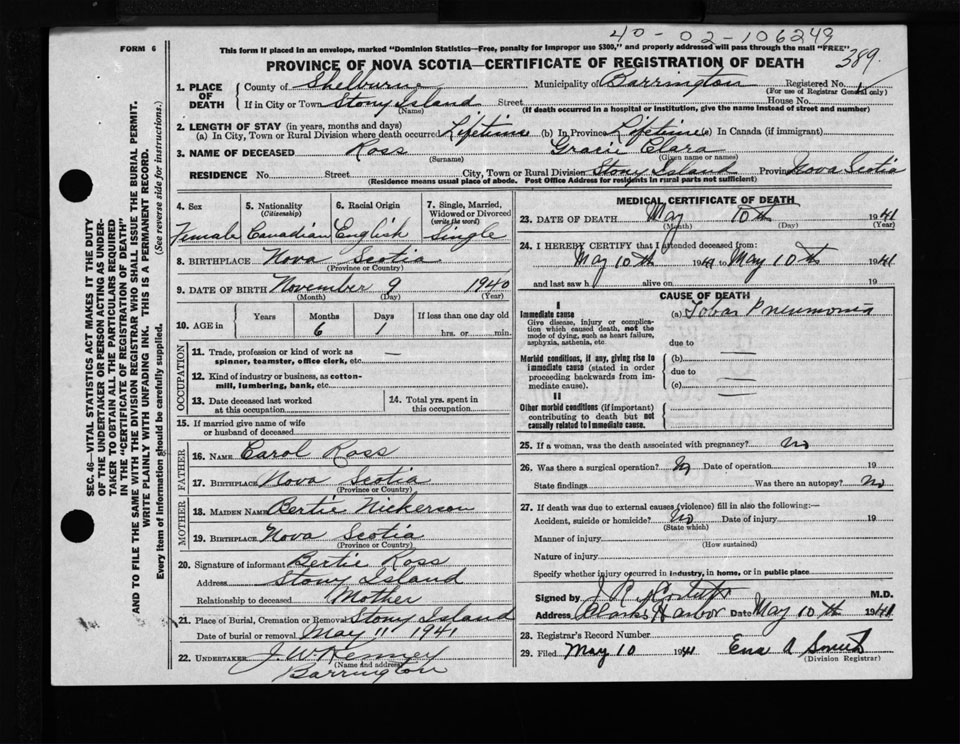 40-02-106249
FORM 6
This form if placed in an envelope, marked "Dominion Statistics—Free, penalty for improper use $300," and properly addressed will pass through the mail "FREE"
389.
PROVINCE OF NOVA SCOTIA—CERTIFICATE OF REGISTRATION OF DEATH
1. PLACE OF DEATH
County of Shelburne Municipality of Barrington Registered No.
(For use of Registrar General only)
If in City or Town Stony Island Street House No.
(Name) (If death occurred in a hospital or institution, give the name instead of street and number)
2. LENGTH OF STAY (in years, months and days)
(a) In City, Town or Rural Division where death occurred Lifetime (b) In Province Lifetime (c) In Canada (if immigrant)
3. NAME OF DECEASED Ross Gracie Clara
(Surname) (Given name or names)
RESIDENCE No. Street City, Town or Rural Division Stony Island Province Nova Scotia
(Residence means usual place of abode. Post Office Address for residents in rural parts not sufficient)
4. Sex
Female
5. Nationality
(Citizenship)
Canadian
6. Racial Origin
English
7. Single, Married, Widowed or Divorced
(write the word)
Single
8. BIRTHPLACE Nova Scotia
(Province or Country)
9. DATE OF BIRTH November 9 1940
(Month) (Day) (Year)
10. AGE in
Years Months Days If less than one day old
6 1 hrs. or min.
OCCUPATION
11. Trade, profession or kind of work as —
spinner, teamster, office clerk, etc.
12. Kind of industry or business, as cotton-
mill, lumbering, bank, etc.
13. Date deceased last worked
at this occupation
14. Total yrs. spent in
this occupation
15. If married give name of wife
or husband of deceased
FATHER
16. NAME Carol Ross
17. BIRTHPLACE Nova Scotia
(Province or Country)
MOTHER
18. MAIDEN NAME Bertie Nickerson
19. BIRTHPLACE Nova Scotia
(Province or Country)
20. Signature of informant Bertie Ross
Address Stony Island
Relationship to deceased Mother
21. Place of Burial, Cremation or Removal Stony Island
Date of burial or removal May 11 1941
22. UNDERTAKER J. W. Kenney
(Name and address)
Barrington
MEDICAL CERTIFICATE OF DEATH
23. DATE OF DEATH May 10th 1941
(Month) (Day) (Year)
24. I HEREBY CERTIFY that I attended deceased from:
May 10th 1941 to May 10th 1941
and last saw h alive on 19
CAUSE OF DEATH
I
Immediate cause
Give disease, injury or complica-
tion which caused death, not the
mode of dying, such as heart failure,
asphyxia, asthenia, etc
(a) Lobar Pneumonia
due to
Morbid conditions, if any, giving rise to
immediate cause (stated in order
proceeding backwards from im-
mediate cause).
(b)
due to
(c)
II
Other morbid conditions (if important)
contributing to death but not
causally related to immediate cause.
25. If a woman, was the death associated with pregnancy? No
26. Was there a surgical operation? No Date of operation 19
State findings Was there an autopsy? No
27. If death was due to external causes (violence) fill in also the following:—
Accident, suicide or homicide? No Date of injury 19
(State which)
Manner of injury
(How sustained)
Nature of injury
Specify whether injury occurred in industry, in home, or in public place
Signed by M.D.
Address Clarks Harbor Date May 10th 1941
28. Registrar's Record Number
29. Filed May 10 1941 Ena A Smith
(Division Registrar)
SEC. 46—VITAL STATISTICS ACT MAKES IT THE DUTY
OF THE UNDERTAKER OR PERSON ACTING AS UNDER-
TAKER TO OBTAIN ALL THE PARTICULARS REQUIRED
IN THE "CERTIFICATE OF REGISTRATION OF DEATH"
AND TO FILE THE SAME WITH THE DIVISION REGISTRAR WHO SHALL ISSUE THE BURIAL PERMIT.
WRITE PLAINLY WITH UNFADING INK. THIS IS A PERMANENT RECORD.
Every item of Information should be carefully supplied. (See reverse side for instructions.)